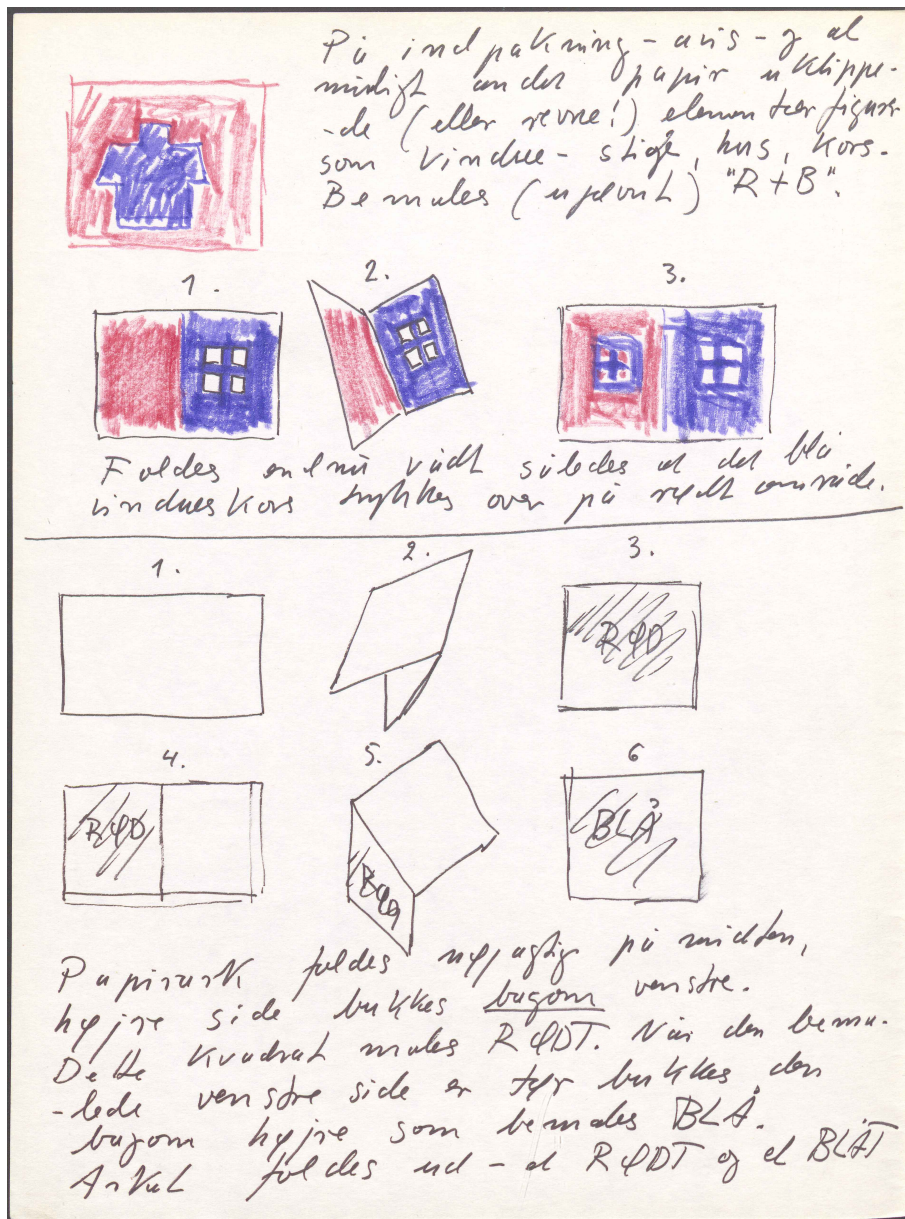 På indpakning - avis - og al
muligt andet papir udklippe-
-de (eller revne!) elementær figurer
som Vindue - stige, hus, kors.
Bemales (ujævnt) "R+B".
1.
2.
3.
Foldes endnu vådt således at det blå
vindueskors trykkes over på rødt område.
1.
2.
3.
RØD
4.
5.
6
RØD
BLÅ
Papirark foldes nøjagtig på midten,
højre side bukkes bagom venstre.
Dette Kvadrat males RØDT. Når den bema-
-lede venstre side er tør bukkes den
bagom højre som bemales BLÅ.
Arket foldes ud - et RØDT og et BLÅT